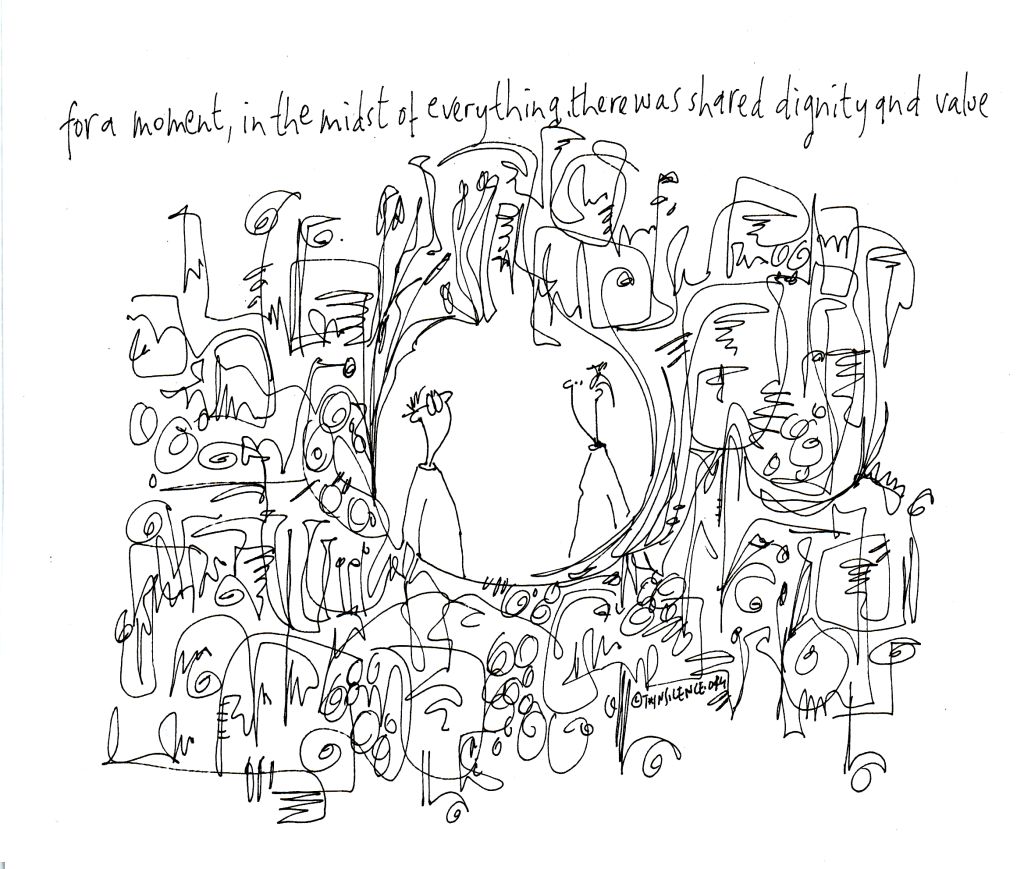 for a moment, in the midst of everything, there was shared dignity and value
©THINSILENCE.ORG